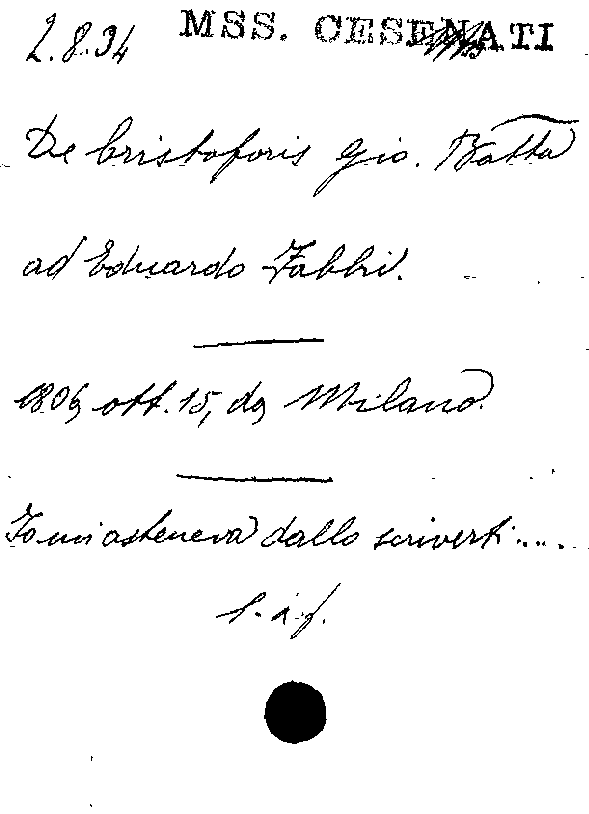 2.8.94 MSS. CESENATI
De Cristoforis Gio. Batta
ad Eduardo Fabbri.
1809 ott. 15, da Milano.
Io mi asteneva dallo scriverti....
l. a. f.